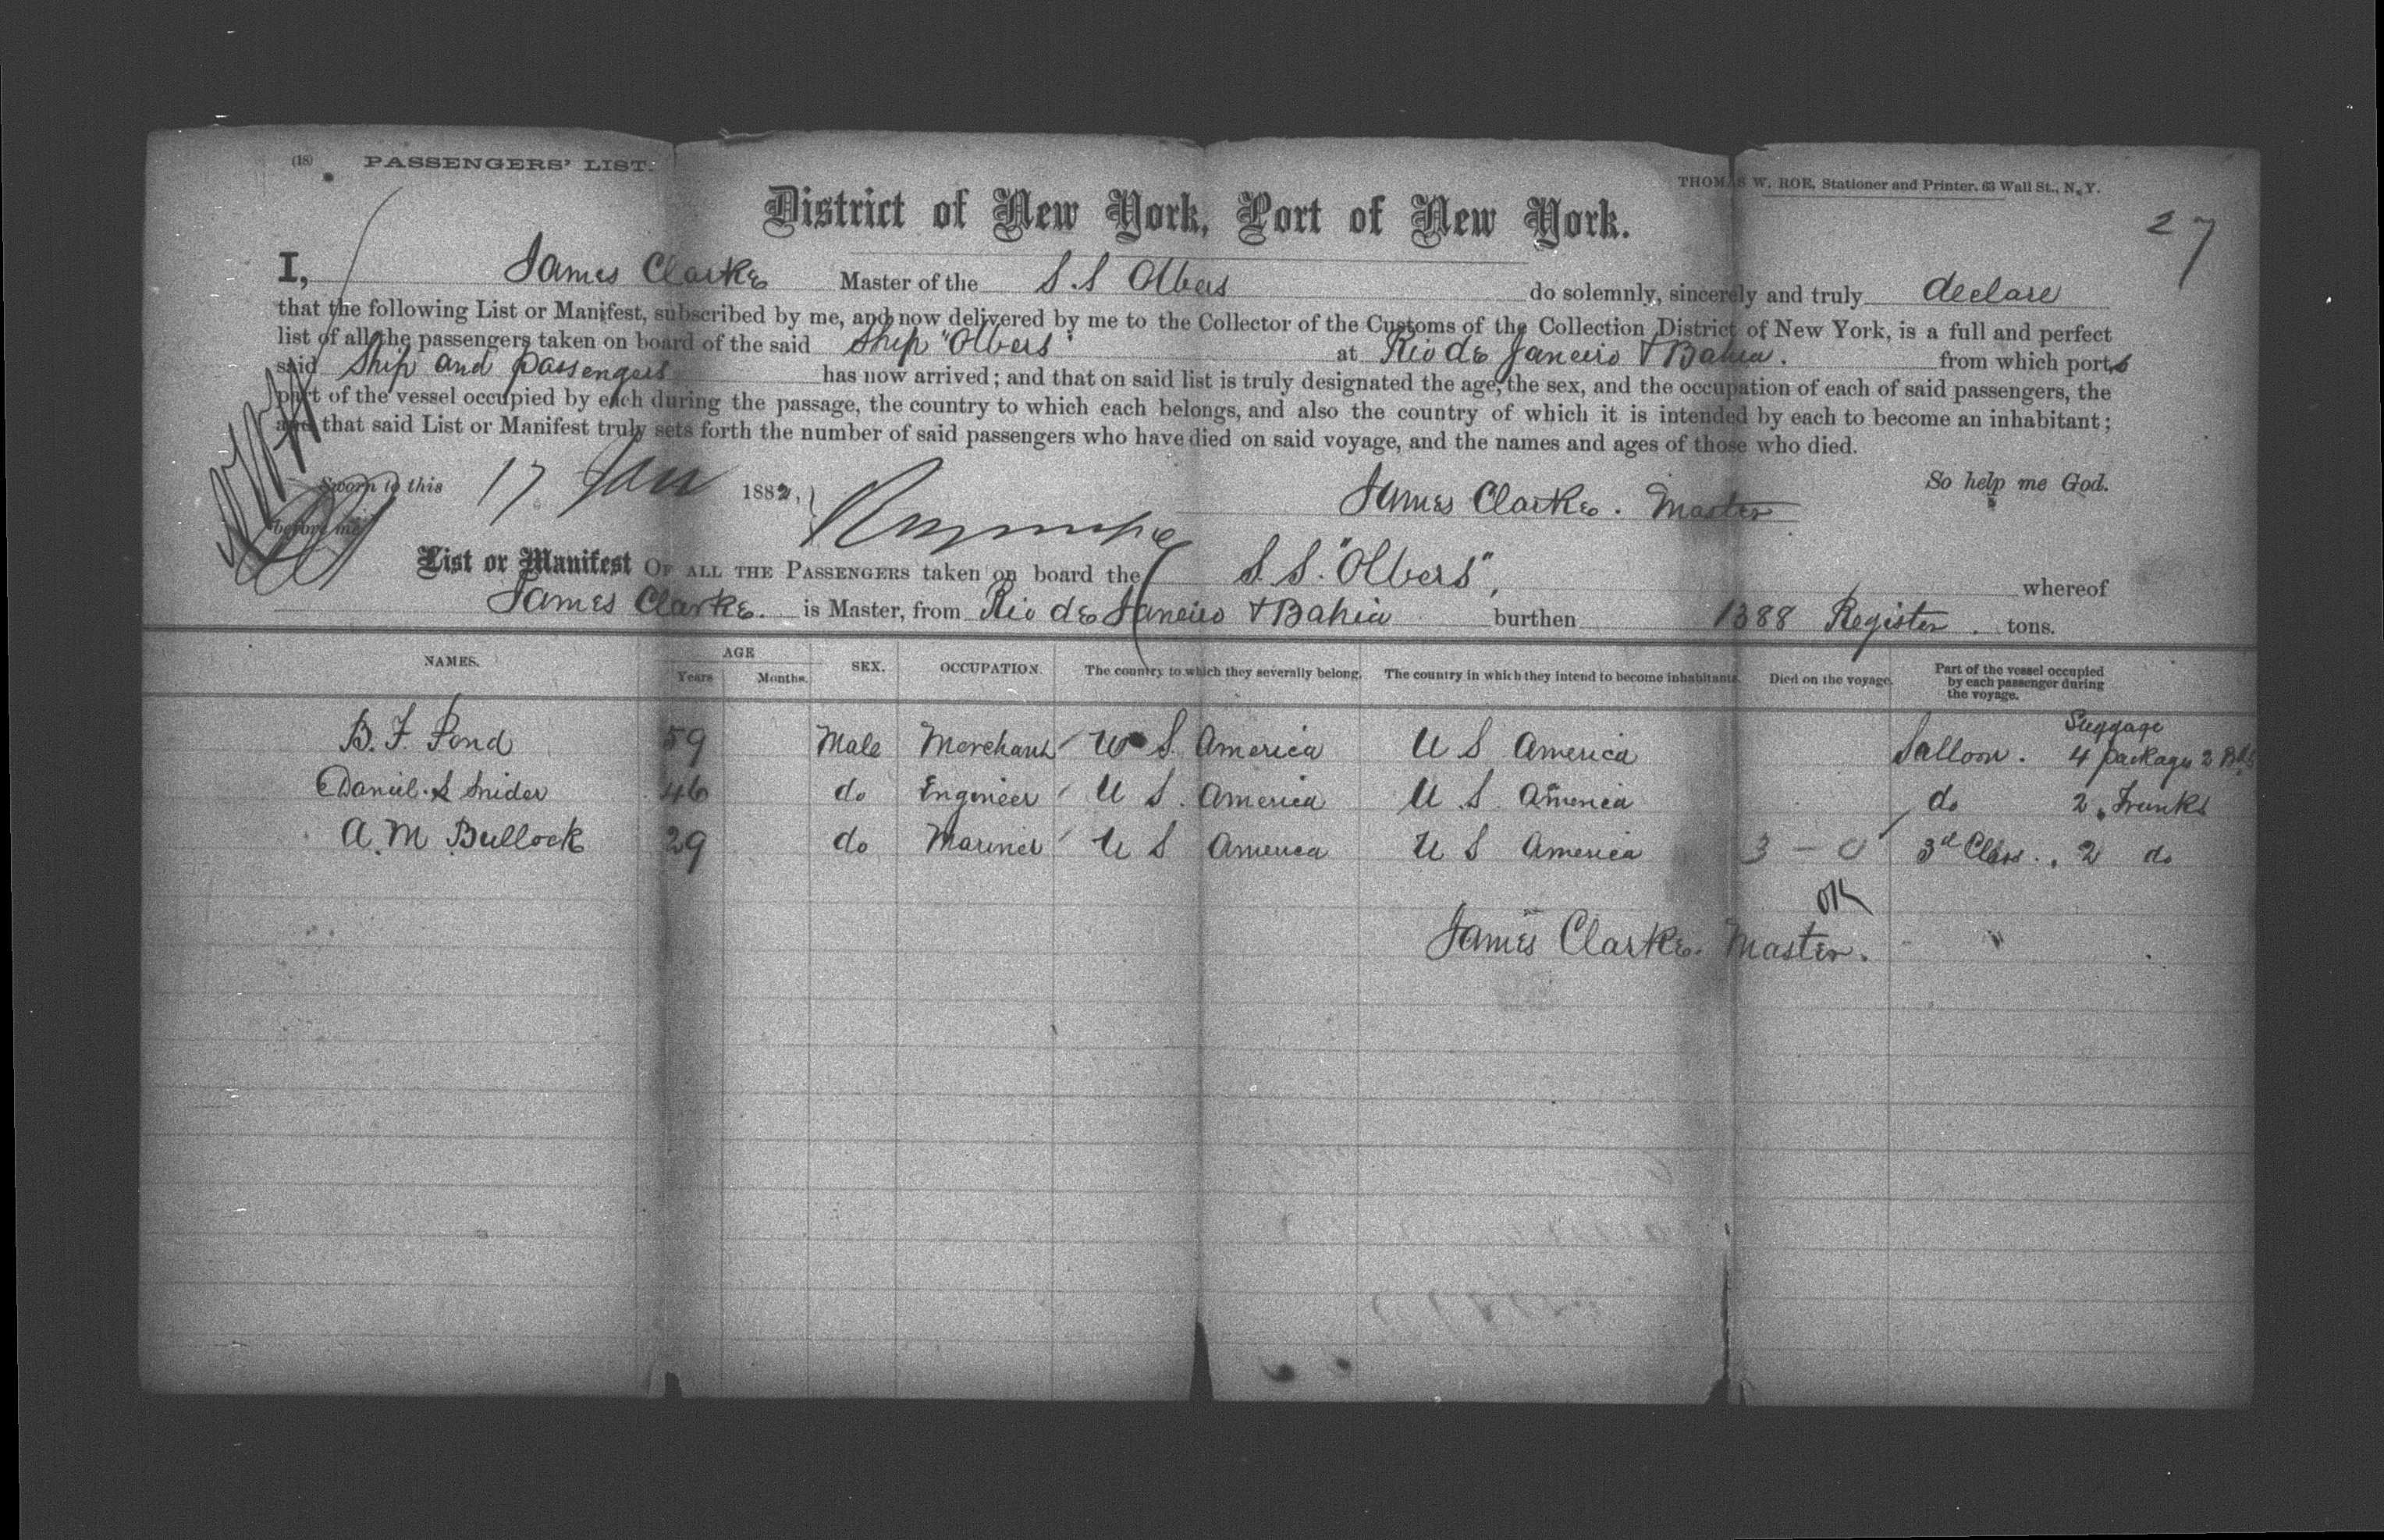 (18) PASSENGERS' LIST.
THOMAS W. ROE, Stationer and Printer, 63 Wall St., N. Y.
27
District of New York, Port of New York.
I, James Clarke Master of the S.S Olbers do solemnly, sincerely and truly declare
that the following List or Manifest, subscribed by me, and now delivered by me to the Collector of the Customs of the Collection District of New York, is a full and perfect
list of all the passengers taken on board of the said Ship "Olbers" at Rio de Janeiro & Bahia. from which ports
said Ship and passengers has now arrived; and that on said list is truly designated the age, the sex, and the occupation of each of said passengers, the
part of the vessel occupied by each during the passage, the country to which each belongs, and also the country of which it is intended by each to become an inhabitant;
and that said List or Manifest truly sets forth the number of said passengers who have died on said voyage, and the names and ages of those who died.
Sworn to this 17 Jan 1882, So help me God.
before me James Clarke. Master
List or Manifest OF ALL THE PASSENGERS taken on board the S.S. "Olbers", whereof
James Clarke. is Master, from Rio de Janeiro & Bahia burthen 1388 Register. tons.
NAMES. AGE Years Months. SEX. OCCUPATION. The country to which they severally belong. The country in which they intend to become inhabitants. Died on the voyage. Part of the vessel occupied by each passenger during the voyage.
Luggage
B. F. Pond 59 Male Merchant U S. America U S America Salloon. 4 package 2 Bds
Daniel. S Snider 46 do Engineer U S. America U S America do 2 Trunks
A. M Bullock 29 do Mariner U S America U S America 3 - 0 3d Class. 2 do
OK
James Clarke. Master.